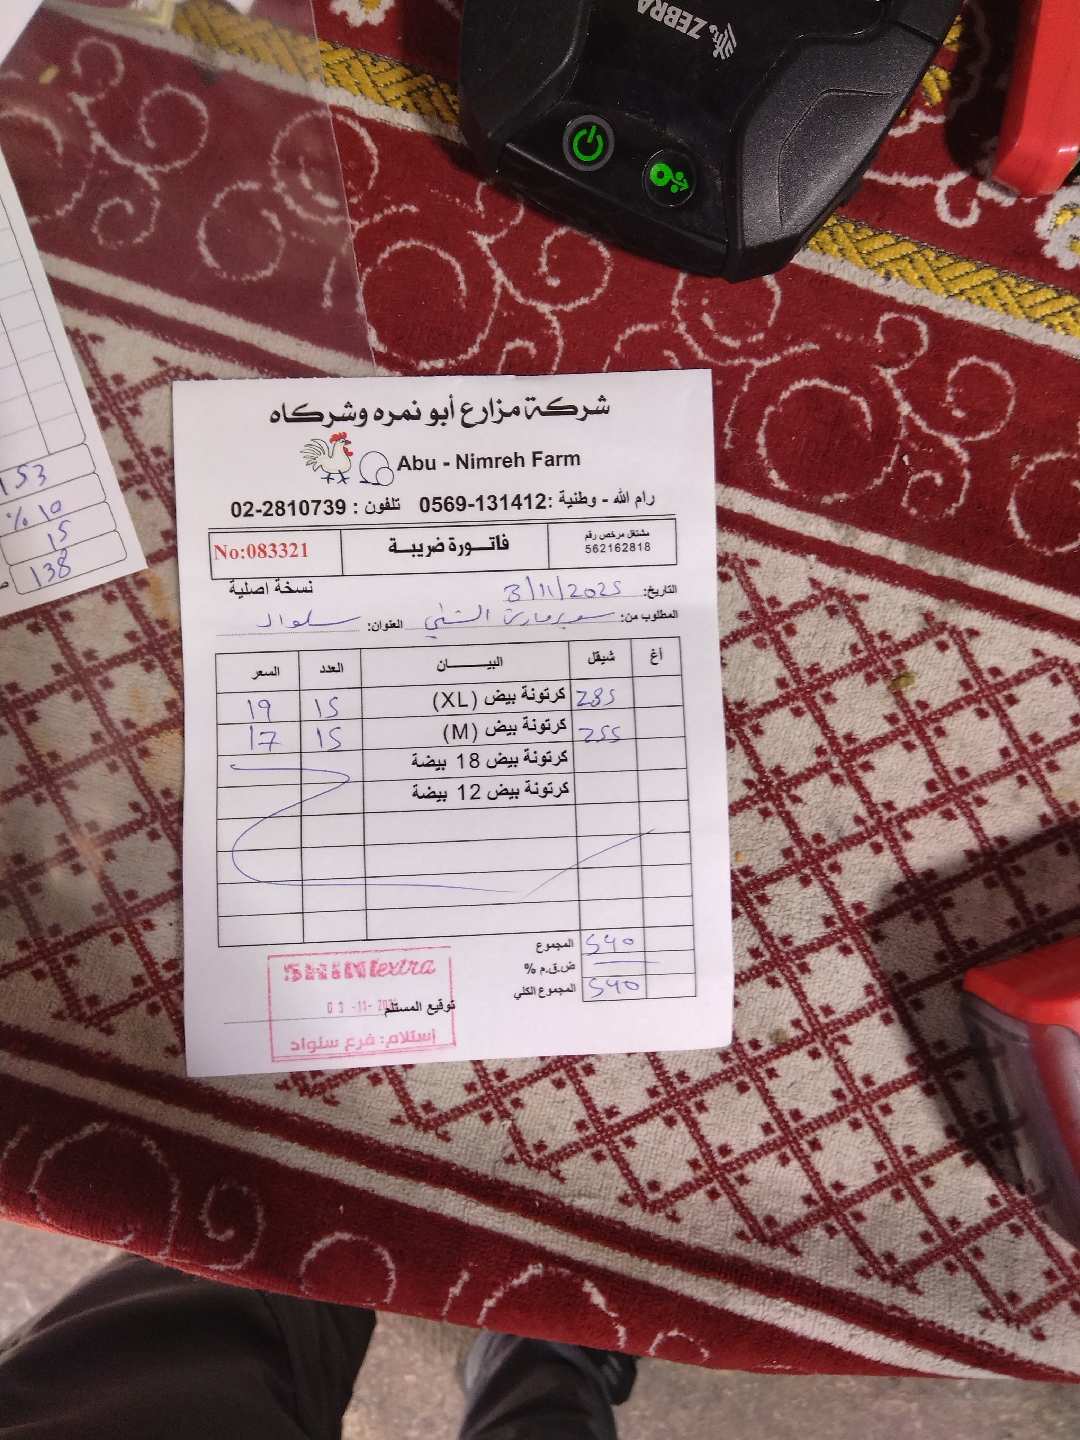 ZEBRA
153
% 10
15
138
شركة مزارع أبو نمره وشركاه
Abu - Nimreh Farm
رام الله - وطنية :0569-131412 تلفون : 02-2810739
مشتغل مرخص رقم
562162818
فاتورة ضريبة
No:083321
نسخة اصلية
التاريخ: 3/11/2025
المطلوب من: سوبرماركت الشني العنوان: سلواد
أغ شيقل البيـــــان العدد السعر
285 كرتونة بيض (XL) 15 19
255 كرتونة بيض (M) 15 17
كرتونة بيض 18 بيضة
كرتونة بيض 12 بيضة
المجموع 540
ض.ق.م %
المجموع الكلي 540
SHINI extra
توقيع المستلم
03-11-2025
إستلام: فرع سلواد